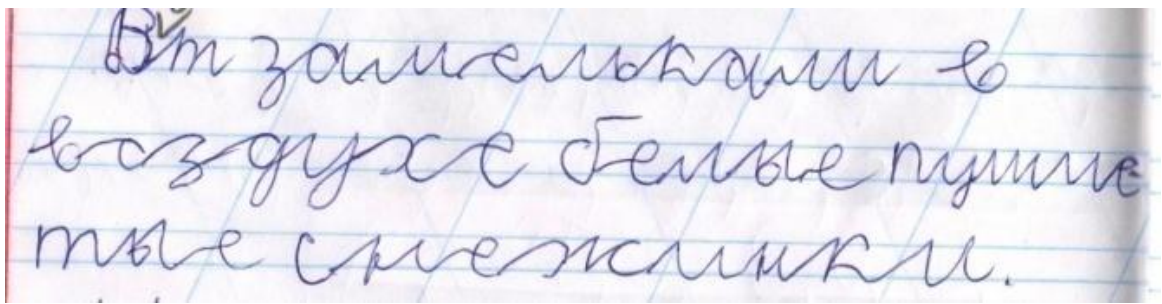 Вт замелькали в
воздухе белые пушис
тые снежинки.